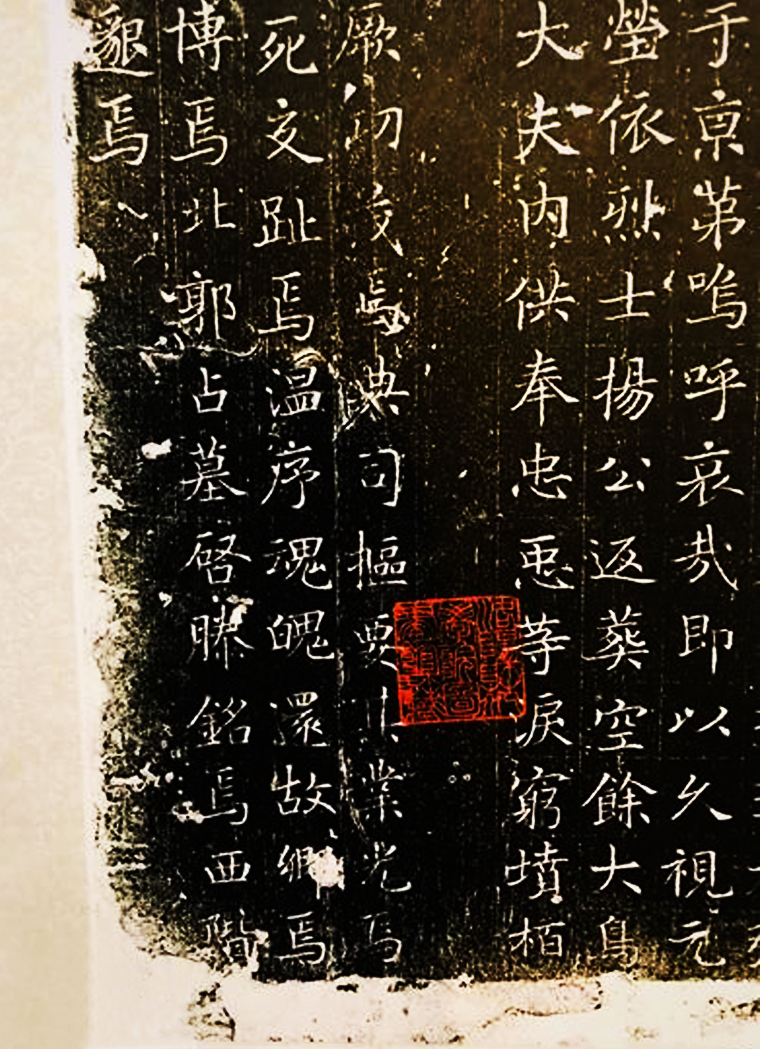 于京第嗚呼哀哉即以久視元
塋依烈士揚公返葬空餘大鳥
大夫内供奉忠𢘑等淚窮墳栢
厥功茂焉典司樞要業光焉
死交趾焉温序魂魄還故鄉焉
博焉北郭占墓啓滕銘焉西階
邈焉